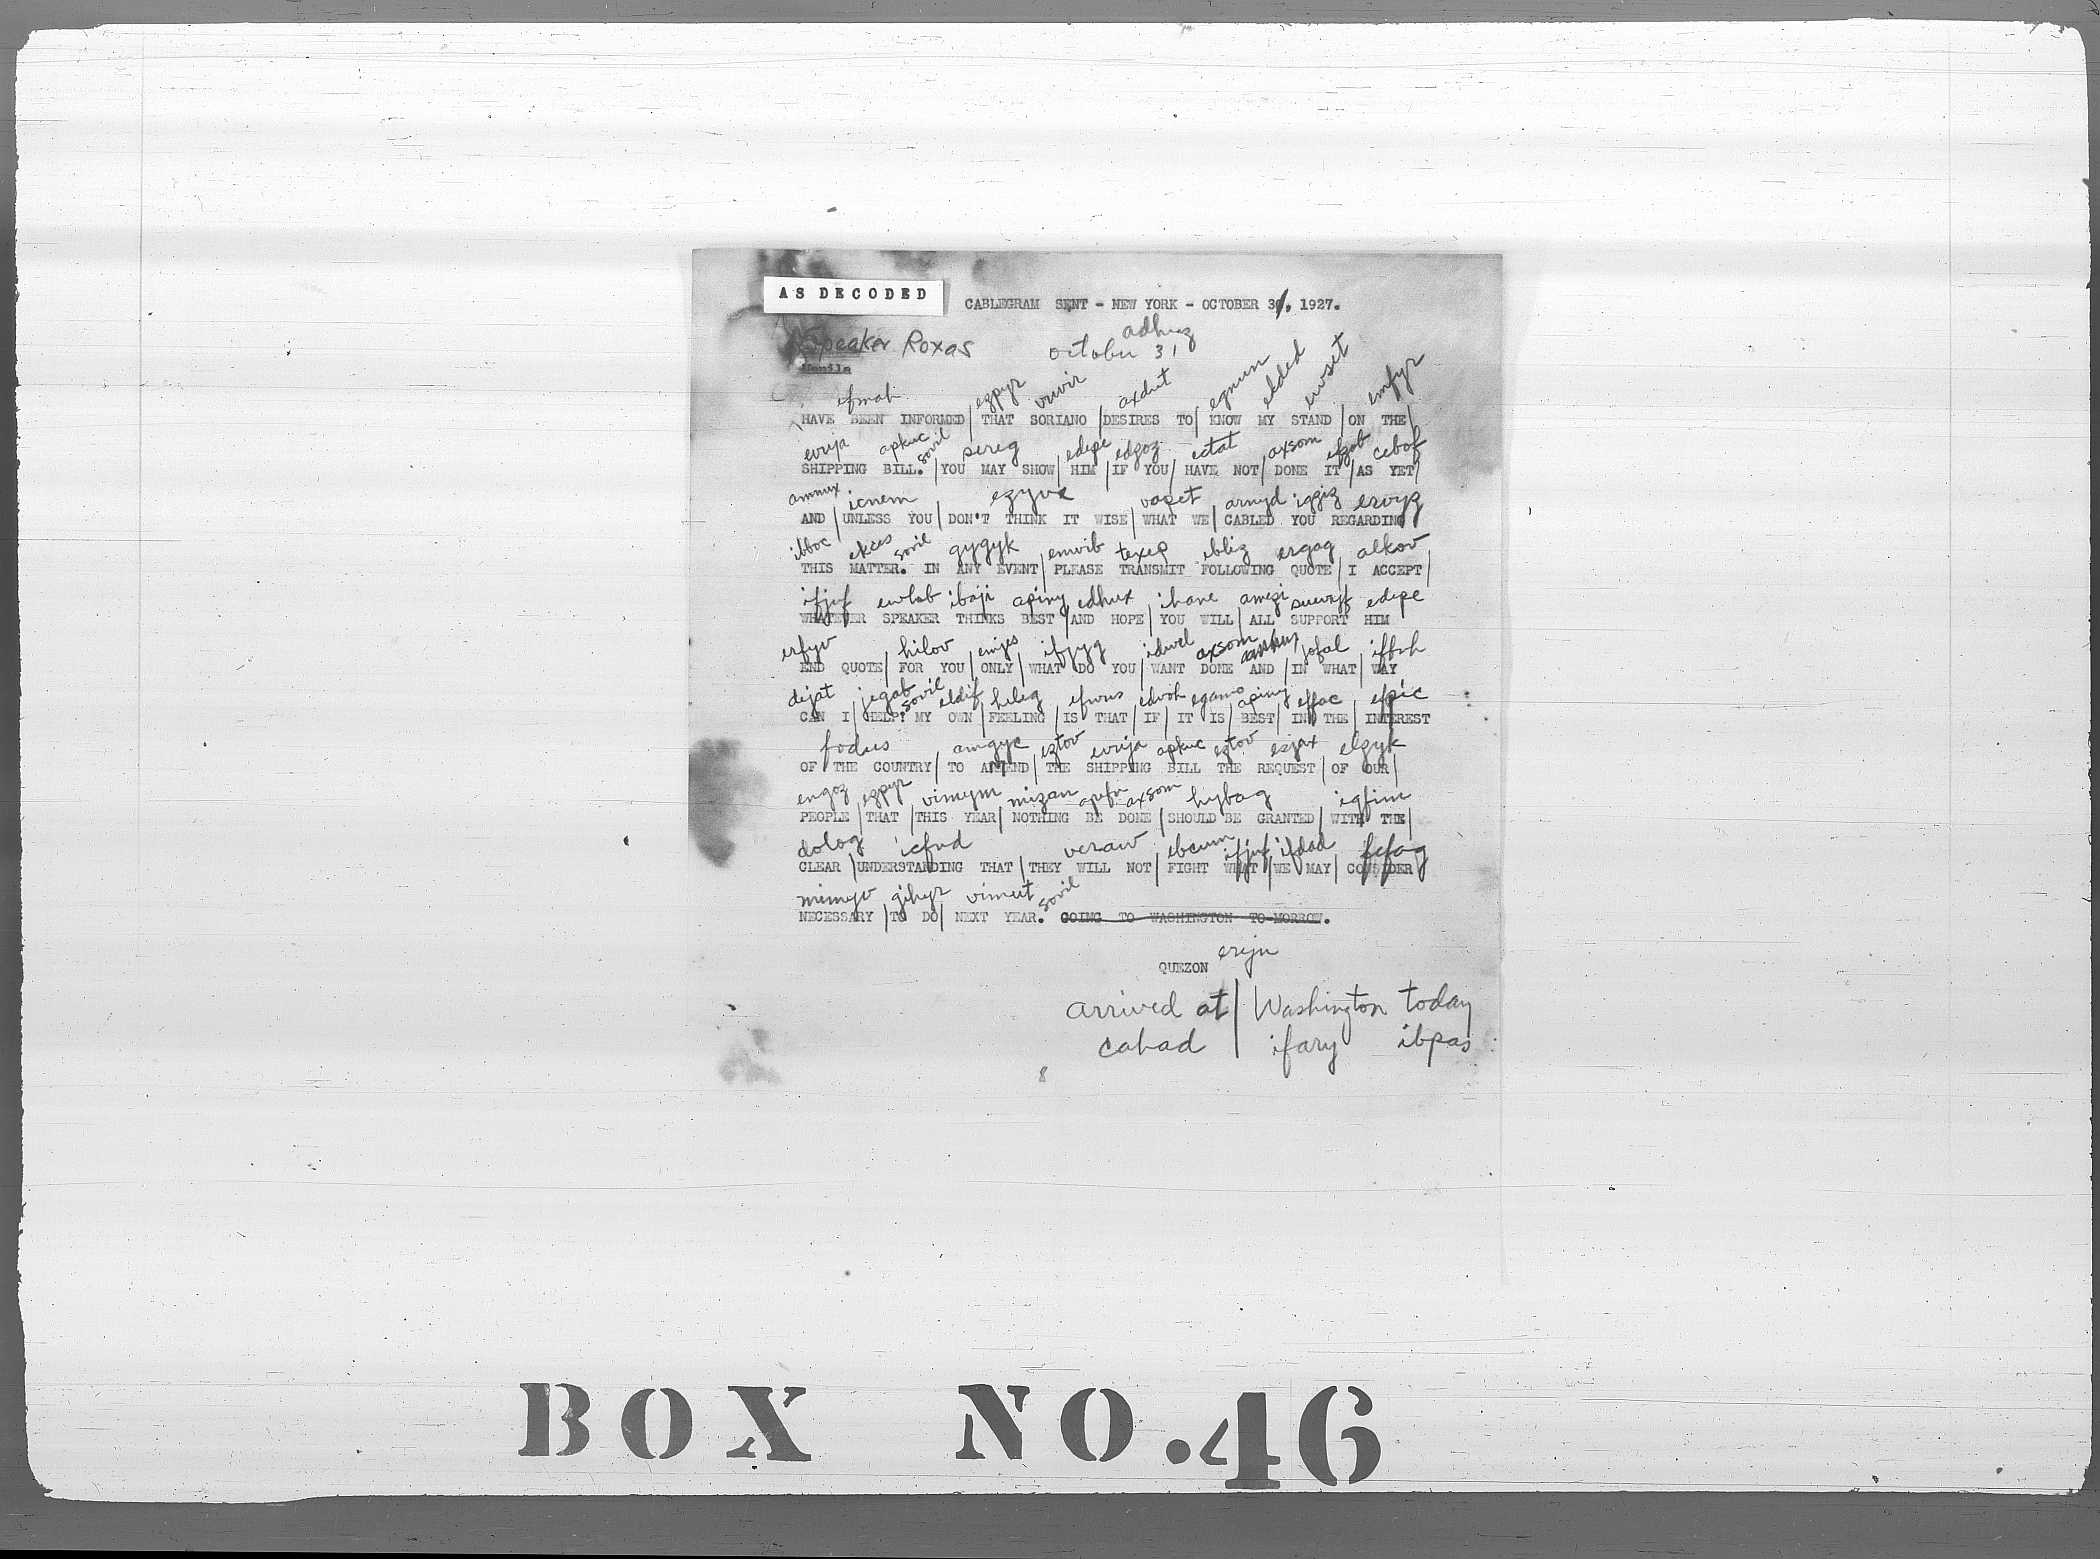 AS DECODED
CABLEGRAM SENT - NEW YORK - OCTOBER 31, 1927.
adhuz
Speaker Roxas october 31
Manila
efmah ezpyr vuvir axdut egnum elded ewsit emfyr
HAVE BEEN INFORMED | THAT SORIANO | DESIRES TO | KNOW MY STAND | ON THE |
evija apkuc sovil sereg edepe edgoz ectat axsom efzob cebof
SHIPPING BILL. | YOU MAY SHOW | HIM | IF YOU | HAVE NOT | DONE IT | AS YET |
ammux icnem ezyve vopet arnyd iggiz ervyz
AND | UNLESS YOU | DON'T THINK IT WISE | WHAT WE | CABLED YOU REGARDING
ibboc ekces sovil gygyk emvib texep ebliz ergag alkov
THIS MATTER. IN ANY EVENT | PLEASE TRANSMIT FOLLOWING QUOTE | I ACCEPT |
ifjuf ewhob ibaji apiny edhux ihane amegi edepe
WHATEVER SPEAKER THINKS BEST | AND HOPE | YOU WILL | ALL SUPPORT HIM
erfyv hilov emjes ifjyg idwel axsom jofal iffuh
END QUOTE | FOR YOU | ONLY | WHAT DO YOU | WANT DONE AND | IN WHAT | WAY
dejat jegab sovil eldif heleg efwus idvoh egamo apiny effac efpic
CAN I | HELP? MY OWN | FEELING | IS THAT | IF | IT IS | BEST | IN THE | INTEREST
fodus amgye eztov evija apkuc eztov esjax elzyk
OF THE COUNTRY | TO AMEND | THE SHIPPING BILL THE REQUEST | OF OUR |
engoz ezpyr vimym mizan apefu axsom hybag iqfim
PEOPLE | THAT | THIS YEAR | NOTHING BE DONE | SHOULD BE GRANTED | WITH THE |
dolog icfud veraw ebcum ifjuf ifdad fefag
CLEAR | UNDERSTANDING THAT | THEY WILL NOT | FIGHT WHAT | WE MAY | CONSIDER
mimyv gihyr vimut sovil
NECESSARY | TO DO | NEXT YEAR. GOING TO WASHINGTON TO-MORROW.
ereju
QUEZON
arrived at | Washington today
cahad | ifary ibpas
8
BOX NO. 46